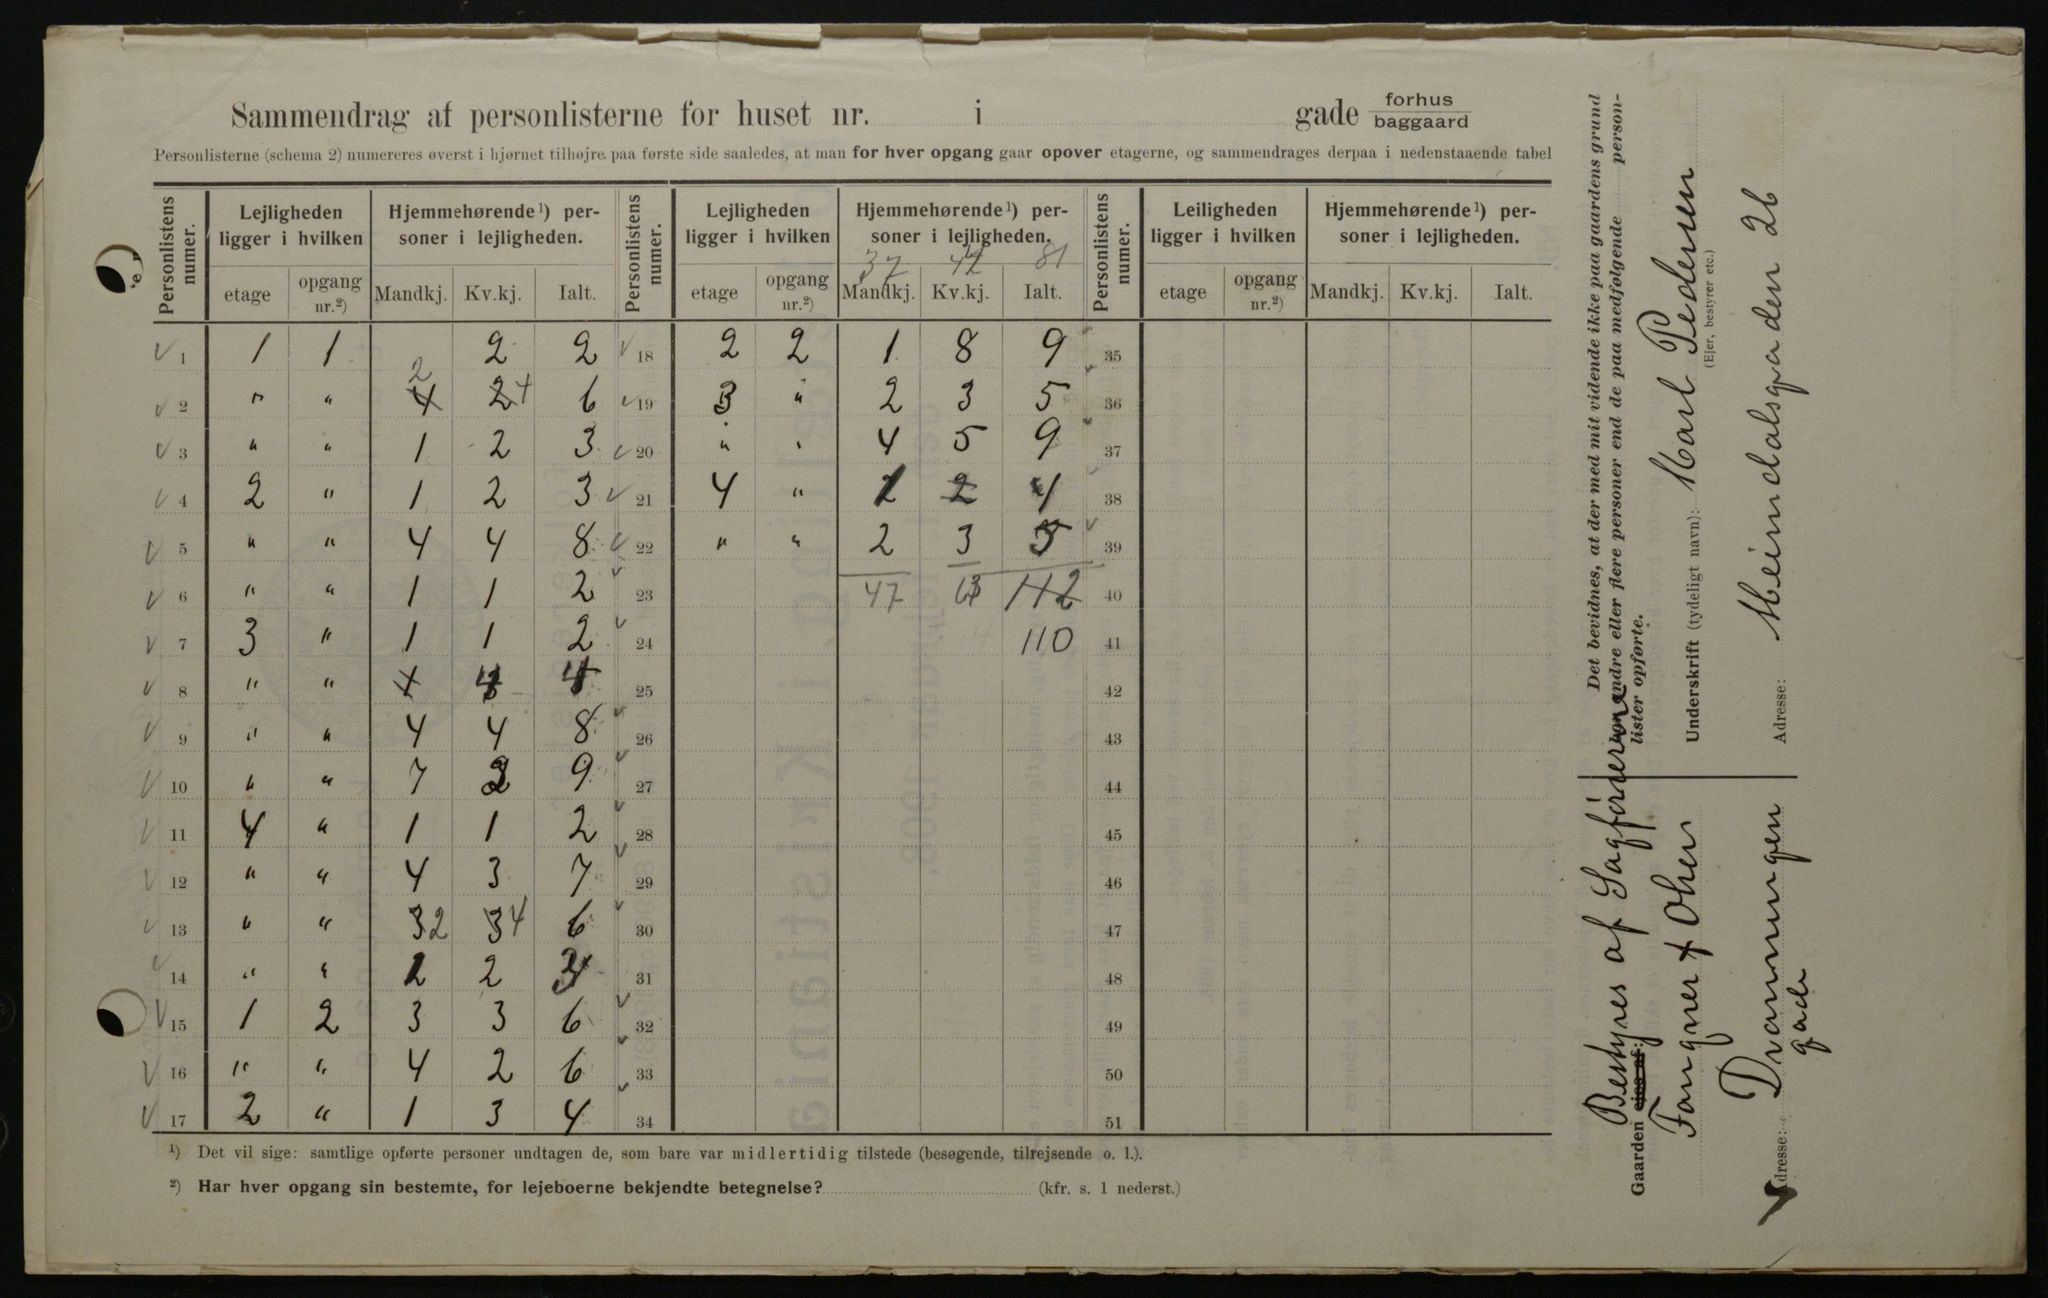 Sammendrag af personlisterne for huset nr. i gade forhus baggaard
Personlisterne (schema 2) numereres øverst i hjørnet tilhøjre paa første side saaledes, at man for hver opgang gaar opover etagerne, og sammendrages derpaa i nedenstaaende tabel
Personlistens numer. Lejligheden ligger i hvilken Hjemmehørende ¹) personer i lejligheden. Personlistens numer. Lejligheden ligger i hvilken Hjemmehørende ¹) personer i lejligheden. Personlistens numer. Leiligheden ligger i hvilken Hjemmehørende ¹) personer i lejligheden.
37 42 81
etage opgang nr.²) Mandkj. Kv.kj. Ialt. etage opgang nr.²) Mandkj. Kv.kj. Ialt. etage opgang nr.²) Mandkj. Kv.kj. Ialt.
1 1 1 2 2 18 2 2 1 8 9 35
2 " " 4 2 2 4 6 19 3 " 2 3 5 36
3 " " 1 2 3 20 " " 4 5 9 37
4 2 " 1 2 3 21 4 " 1 2 4 38
5 " " 4 4 8 22 " " 2 3 5 39
6 " " 1 1 2 23 47 63 112 40
7 3 " 1 1 2 24 110 41
8 " " 4 25 42
9 " " 4 4 8 26 43
10 " " 7 2 9 27 44
11 4 " 1 1 2 28 45
12 " " 4 3 7 29 46
13 " " 3 2 3 4 6 30 47
14 " " 1 2 3 31 48
15 1 2 3 3 6 32 49
16 " " 4 2 6 33 50
17 2 " 1 3 4 34 51
¹) Det vil sige: samtlige opførte personer undtagen de, som bare var midlertidig tilstede (besøgende, tilrejsende o. l.).
²) Har hver opgang sin bestemte, for lejeboerne bekjendte betegnelse? (kfr. s. 1 nederst.)
Det bevidnes, at der med mit vidende ikke paa gaardens grund
bor andre eller flere personer end de paa medfølgende person-
lister opførte.
Underskrift (tydeligt navn): Karl Pedersen
(Ejer, bestyrer etc.)
Adresse: Heimdalsgaden 26
Bestyres af Sagfórerne
Gaarden ejes af:
Fougner & Olsen
Adresse: Dronningen
gade